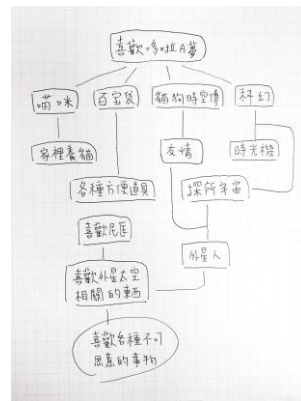 喜歡哆啦A夢
喵咪
百宝袋
貓狗時空傳
科幻
家裡養貓
友情
時光機
各種方便道具
探索宇宙
喜歡
外星人
喜歡外星太空
相關的東西
喜歡各種不可
思議的事物